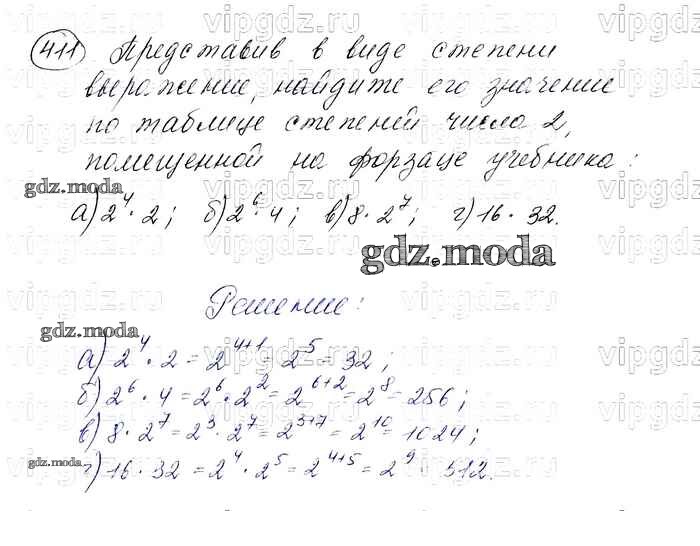 411 Представив в виде степени
выражение, найдите его значение
по таблице степеней числа 2,
помещенной на форзаце учебника:
gdz.moda
а) 2⁴ · 2; б) 2⁶ · 4; в) 8 · 2⁷; г) 16 · 32.
gdz.moda
Решение:
gdz.moda
а) 2⁴ · 2 = 2⁴⁺¹ = 2⁵ = 32;
б) 2⁶ · 4 = 2⁶ · 2² = 2⁶⁺² = 2⁸ = 256;
в) 8 · 2⁷ = 2³ · 2⁷ = 2³⁺⁷ = 2¹⁰ = 1024;
gdz.moda
г) 16 · 32 = 2⁴ · 2⁵ = 2⁴⁺⁵ = 2⁹ = 512.
vipgdz.ru